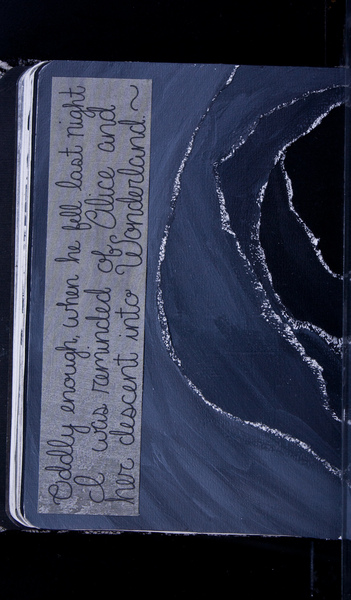 Oddly enough, when he fell last night
I was reminded of Alice and
her descent into Wonderland.~